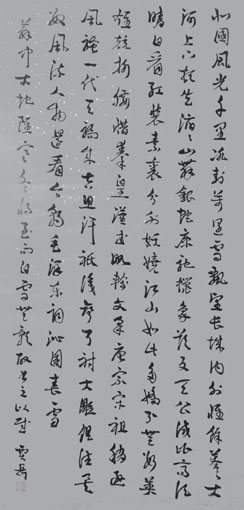 北國風光千里冰封萬里雪飄望長城内外惟餘莽莽大
河上下頓失滔滔山舞銀蛇原馳蠟象欲與天公試比高須
晴日看紅裝素裹分外妖嬈江山如此多嬌引無數英
雄競折腰惜秦皇漢武略輸文采唐宗宋祖稍遜
風騷一代天驕成吉思汗祇識彎弓射大雕俱往矣
數風流人物還看今朝毛澤東詞沁園春雪
中大地寒冬將至而白雪無書之以